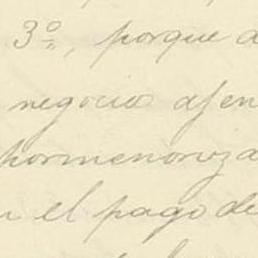 3º, porque a
negocio ajen
pormenoriza
n el pago de